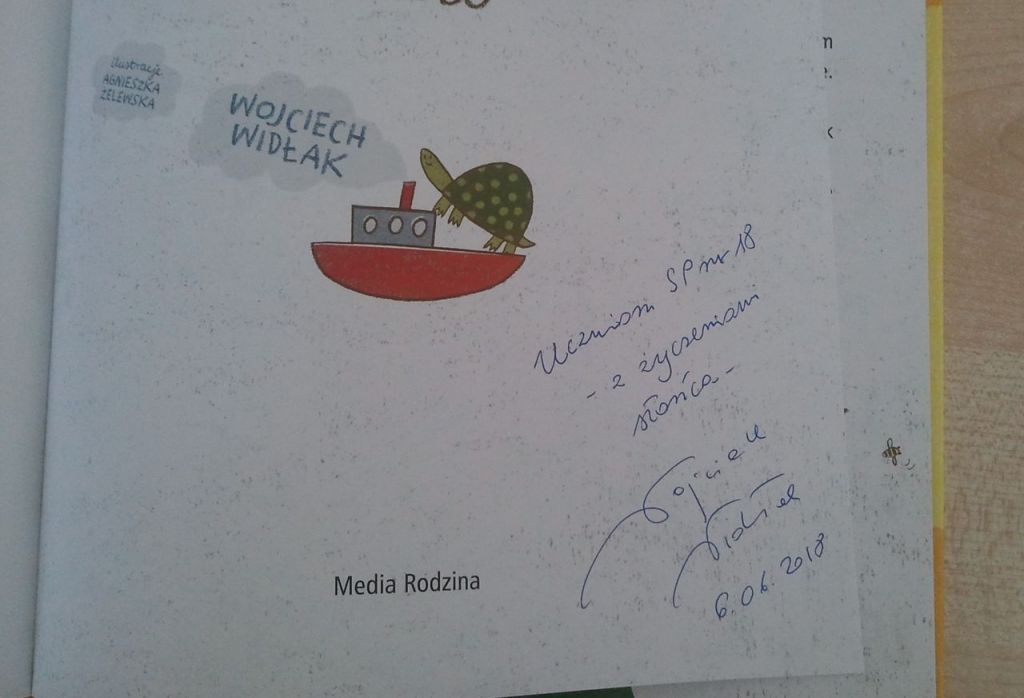 ilustracje
AGNIESZKA
ŻELEWSKA
WOJCIECH
WIDŁAK
Uczniom SP nr 18
- z życzeniami
słońca -
Wojciech
Widłak
6.06.2018
Media Rodzina